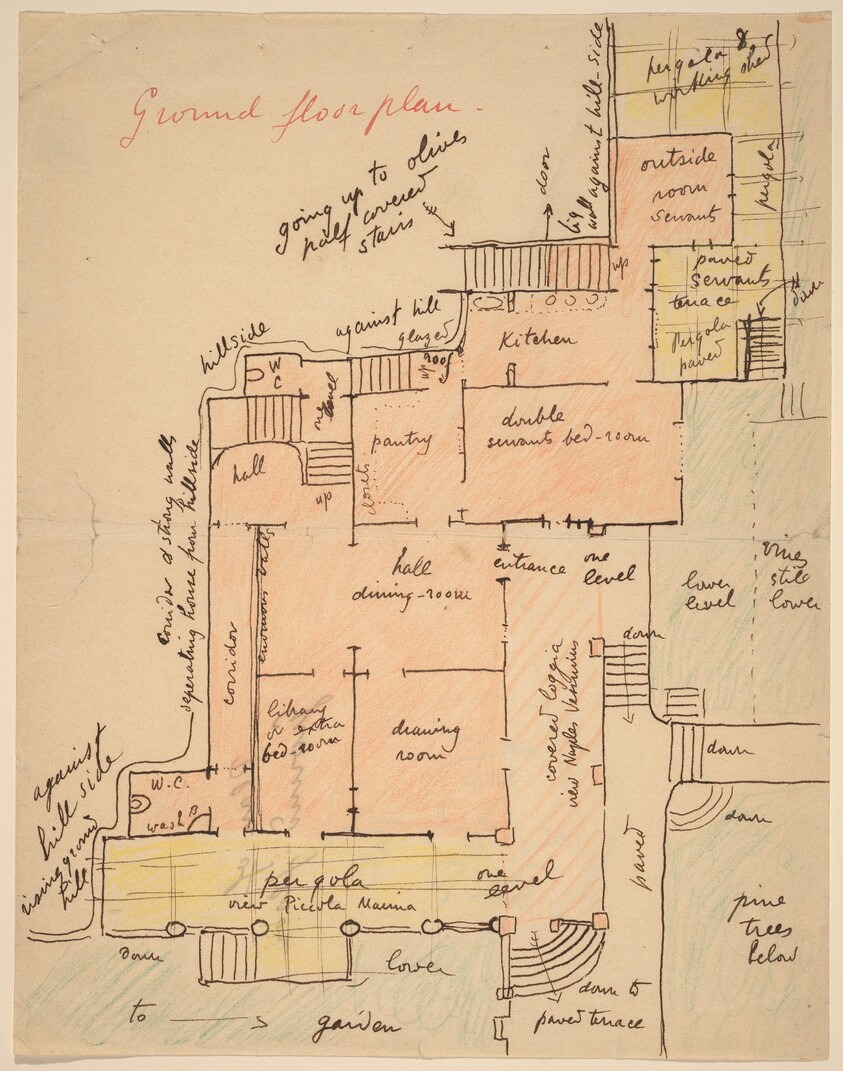 Ground floor plan -
pergola &
working shed
big
wall against hill-side
door
outside
room
servants
pergola
going up to olives
half covered
stairs
up
paved
servants
terrace
Pergola
paved
down
hillside
against hill
glazed
roof
up
W
C
one
level
Kitchen
pantry
closets
double
servants bed-room
hall
up
corridor & strong walls
seperating house from hillside
corridor
enormous walls
hall
dining-room
entrance
one
level
lower
level
vines
still
lower
down
covered loggia
view Naples Vesuvius
library
or extra
bed-room
drawing
room
down
down
against
hill side
rising ground
hill
W.C.
wash B
pergola
view Piccola Marina
one
level
paved
pine
trees
below
down
lower
down to
paved terrace
to
garden